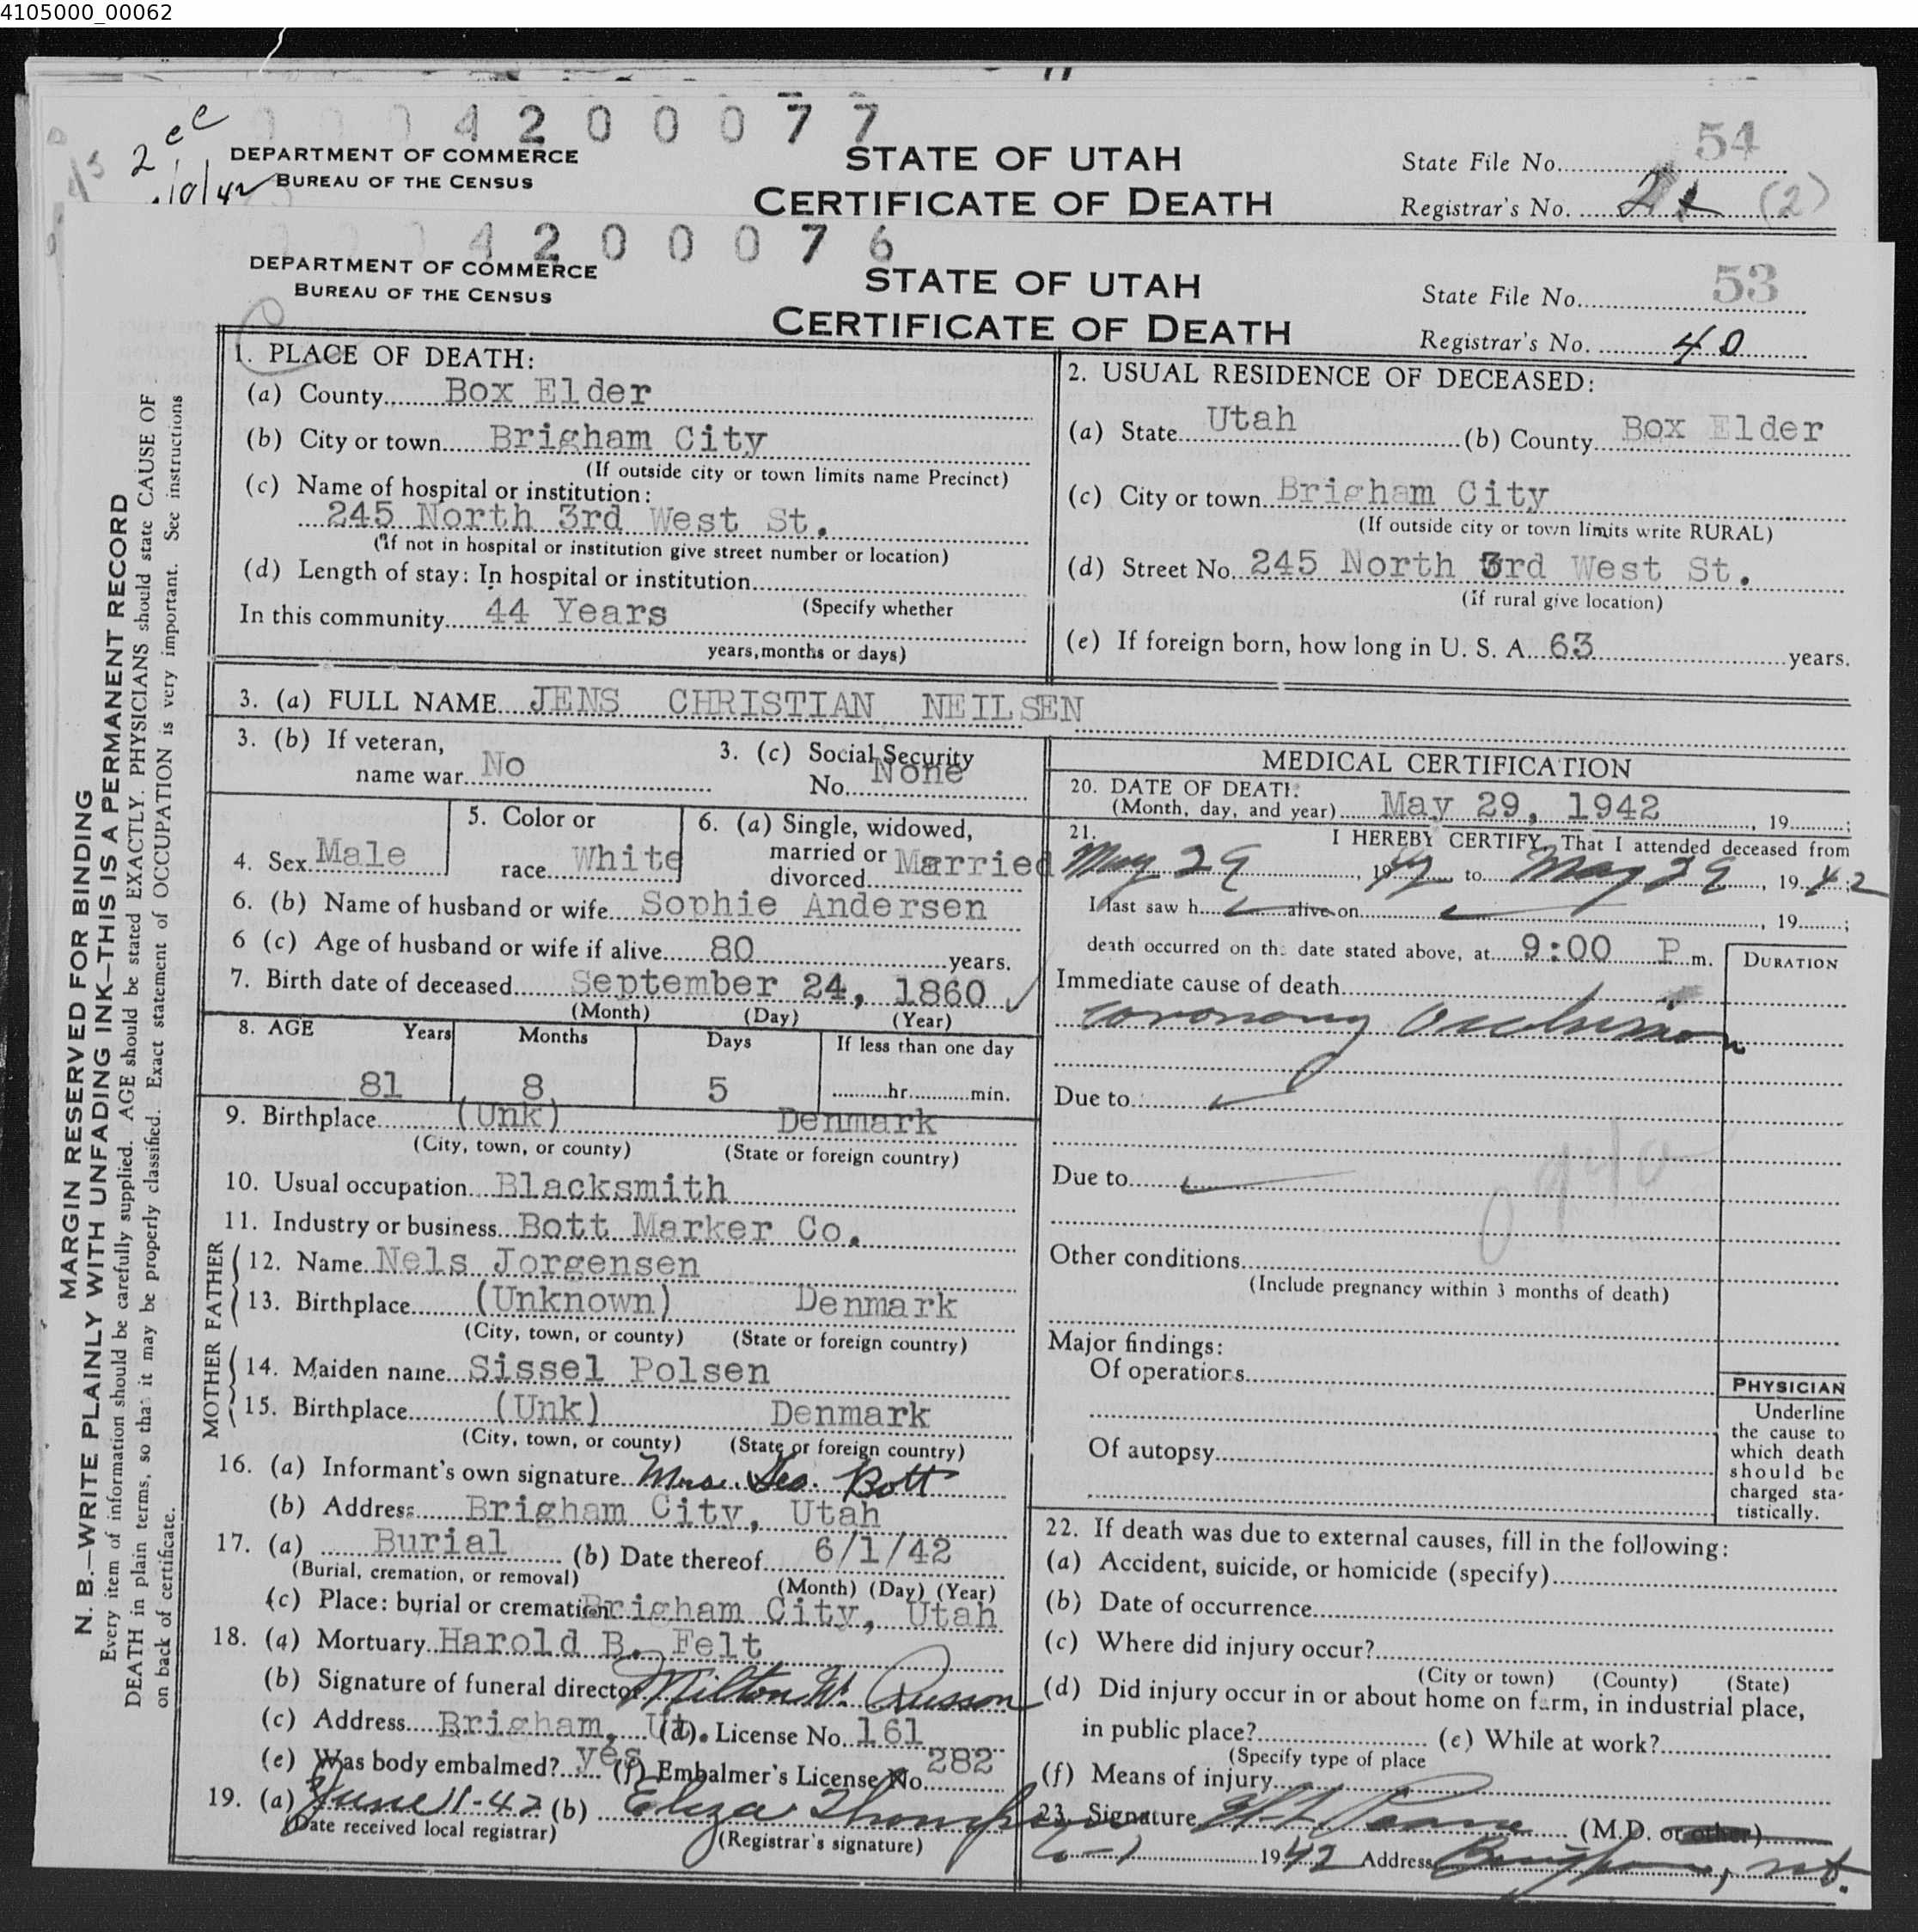 4105000_00062
4 2 0 0 0 7 7
54
2 cc
DEPARTMENT OF COMMERCE
BUREAU OF THE CENSUS
STATE OF UTAH
CERTIFICATE OF DEATH
State File No.
Registrar's No. (2)
4 2 0 0 0 7 6
DEPARTMENT OF COMMERCE
BUREAU OF THE CENSUS
STATE OF UTAH
CERTIFICATE OF DEATH
State File No. 53
Registrar's No. 40
MARGIN RESERVED FOR BINDING
N. B.—WRITE PLAINLY WITH UNFADING INK—THIS IS A PERMANENT RECORD
Every item of information should be carefully supplied. AGE should be stated EXACTLY. PHYSICIANS should state CAUSE OF
DEATH in plain terms, so that it may be properly classified. Exact statement of OCCUPATION is very important. See instructions
on back of certificate.
1. PLACE OF DEATH:
(a) County Box Elder
(b) City or town Brigham City
(If outside city or town limits name Precinct)
(c) Name of hospital or institution:
245 North 3rd West St.
(If not in hospital or institution give street number or location)
(d) Length of stay: In hospital or institution
In this community 44 Years (Specify whether
years, months or days)
2. USUAL RESIDENCE OF DECEASED:
(a) State Utah (b) County Box Elder
(c) City or town Brigham City
(If outside city or town limits write RURAL)
(d) Street No. 245 North 3rd West St.
(if rural give location)
(e) If foreign born, how long in U. S. A. 63 years.
3. (a) FULL NAME JENS CHRISTIAN NEILSEN
3. (b) If veteran,
name war No
3. (c) Social Security
No. None
4. Sex Male
5. Color or
race White
6. (a) Single, widowed,
married or
divorced Married
6. (b) Name of husband or wife Sophie Andersen
6 (c) Age of husband or wife if alive 80 years.
7. Birth date of deceased September 24, 1860
(Month) (Day) (Year)
8. AGE Years Months Days If less than one day
81 8 5 hr. min.
9. Birthplace (Unk) Denmark
(City, town, or county) (State or foreign country)
10. Usual occupation Blacksmith
11. Industry or business Bott Marker Co.
FATHER
12. Name Nels Jorgensen
13. Birthplace (Unknown) Denmark
(City, town, or county) (State or foreign country)
MOTHER
14. Maiden name Sissel Polsen
15. Birthplace (Unk) Denmark
(City, town, or county) (State or foreign country)
16. (a) Informant's own signature Mrs. Geo. Bott
(b) Address Brigham City, Utah
17. (a) Burial (b) Date thereof 6/1/42
(Burial, cremation, or removal) (Month) (Day) (Year)
(c) Place: burial or cremation Brigham City, Utah
18. (a) Mortuary Harold B. Felt
(b) Signature of funeral director Milton W. Russon
(c) Address Brigham, Ut. (d) License No. 161
(e) Was body embalmed? yes (f) Embalmer's License No. 282
19. (a) June 1-42 (b) Eliza Thompson
(Date received local registrar) (Registrar's signature)
MEDICAL CERTIFICATION
20. DATE OF DEATH:
(Month, day, and year) May 29, 1942, 19 ;
21. I HEREBY CERTIFY, That I attended deceased from
May 29, 1942 to May 29, 1942;
I last saw h alive on , 19 ;
death occurred on the date stated above, at 9:00 P m.
DURATION
Immediate cause of death
Coronary Occlusion
Due to
Due to
Other conditions
(Include pregnancy within 3 months of death)
Major findings:
Of operations
Of autopsy
PHYSICIAN
Underline
the cause to
which death
should be
charged sta-
tistically.
22. If death was due to external causes, fill in the following:
(a) Accident, suicide, or homicide (specify)
(b) Date of occurrence
(c) Where did injury occur?
(City or town) (County) (State)
(d) Did injury occur in or about home on farm, in industrial place,
in public place? (e) While at work?
(Specify type of place
(f) Means of injury
23. Signature (M.D. or other)
6-1 1942 Address Brigham, Ut.